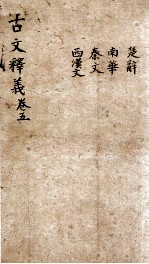 楚辭
南華
秦文
西漢文
古文釋義卷五